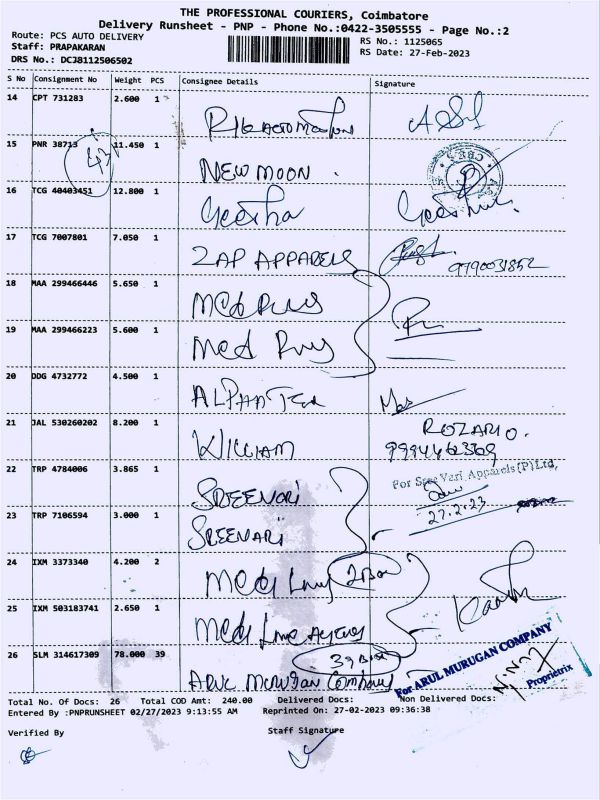 THE PROFESSIONAL COURIERS, Coimbatore
Delivery Runsheet - PNP - Phone No.:0422-3505555 - Page No.:2
Route: PCS AUTO DELIVERY
RS No.: 1125065
Staff: PRAPAKARAN
RS Date: 27-Feb-2023
DRS No.: DCJ8112506502
S No Consignment No Weight PCS Consignee Details Signature
14 CPT 731283 2.600 1
15 PNR 38713 11.450 1 NEW MOON.
16 TCG 40403451 12.800 1 Geetha
17 TCG 7007801 7.050 1 ZAP APPARELS
9790031852
18 MAA 299466446 5.650 1 Med Plus
19 MAA 299466223 5.600 1 Med Plus
20 DDG 4732772 4.500 1
21 JAL 530260202 8.200 1 WILLIAM ROZARIO.
22 TRP 4784006 3.865 1 SREEVARI
For Sree Vari Apparels (P) Ltd,
27.2.23
23 TRP 7106594 3.000 1 SREEVARI
24 IXM 3373340 4.200 2 2 Box
25 IXM 503183741 2.650 1
26 SLM 314617309 78.000 39 39 Box
ARUL MURUGAN Company
For ARUL MURUGAN COMPANY
Proprietrix
Total No. Of Docs: 26 Total COD Amt: 240.00 Delivered Docs: Non Delivered Docs:
Entered By :PNPRUNSHEET 02/27/2023 9:13:55 AM Reprinted On: 27-02-2023 09:36:38
Verified By Staff Signature